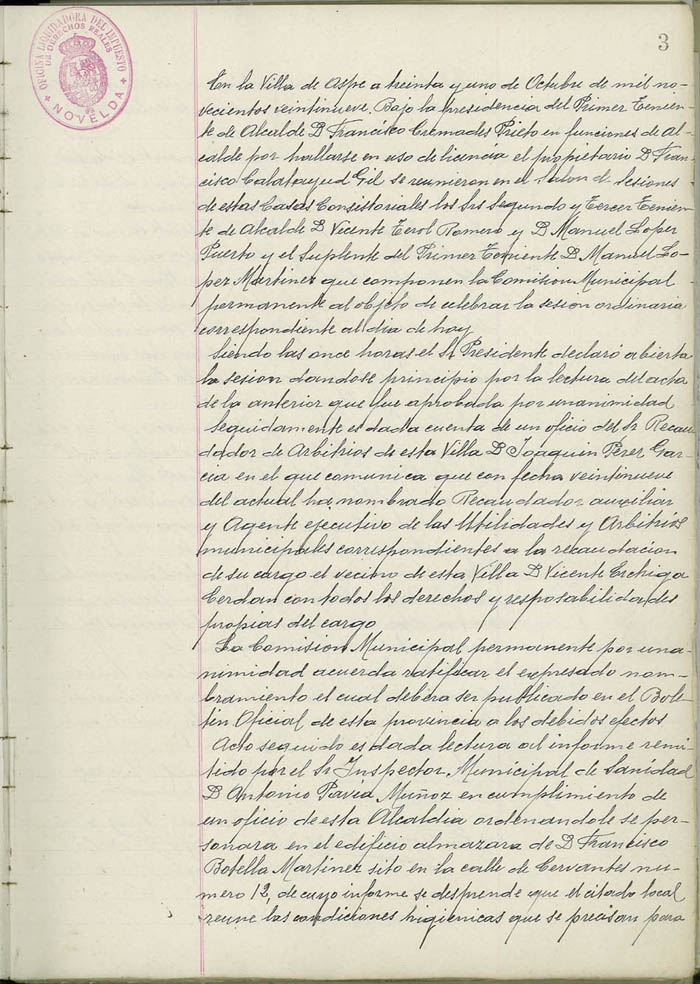 OFICINA LIQUIDADORA DEL IMPUESTO
DE DERECHOS REALES
NOVELDA
3
En la Villa de Aspe a treinta y uno de Octubre de mil no-
vecientos veintinueve. Bajo la presidencia del Primer Tenien-
te de Alcalde D Francisco Cremades Prieto en funciones de Al-
calde por hallarse en uso de licencia el propietario D Fran-
cisco Calatayud Gil se reunieron en el Salon de Sesiones
de estas Casas Consistoriales los Srs Segundo y Tercer Tenien-
te de Alcalde D Vicente Terol Romero y D Manuel Lopez
Puerto y el Suplente del Primer Teniente D Manuel Lo-
pez Martinez que componen la Comision Municipal
permanente al objeto de celebrar la sesion ordinaria
correspondiente al dia de hoy
Siendo las once horas el Sr Presidente declaró abierta
la sesion dandose principio por la lectura del acta
de la anterior que fue aprobada por unanimidad
Seguidamente es dada cuenta de un oficio del Sr Recau-
dador de Arbitrios de esta Villa D Joaquin Perez Gar-
cia en el que comunica que con fecha veintinueve
del actual ha nombrado Recaudador auxiliar
y Agente ejecutivo de las Utilidades y Arbitrios
municipales correspondientes a la recaudacion
de su cargo el vecino de esta Villa D Vicente Erchiga
Cerdan con todos los derechos y responsabilidades
propias del cargo
La Comision Municipal permanente por una-
nimidad acuerda ratificar el expresado nom-
bramiento el cual debera ser publicado en el Bole-
tin Oficial de esta provincia a los debidos efectos
Acto seguido es dada lectura al informe remi-
tido por el Sr Inspector Municipal de Sanidad
D Antonio Pavia Muñoz en cumplimiento de
un oficio de esta Alcaldia ordenandole se per-
sonara en el edificio almazara de D Francisco
Botella Martinez sito en la calle de Cervantes nu-
mero 12, de cuyo informe se desprende que el citado local
reune las condiciones higienicas que se precisan para